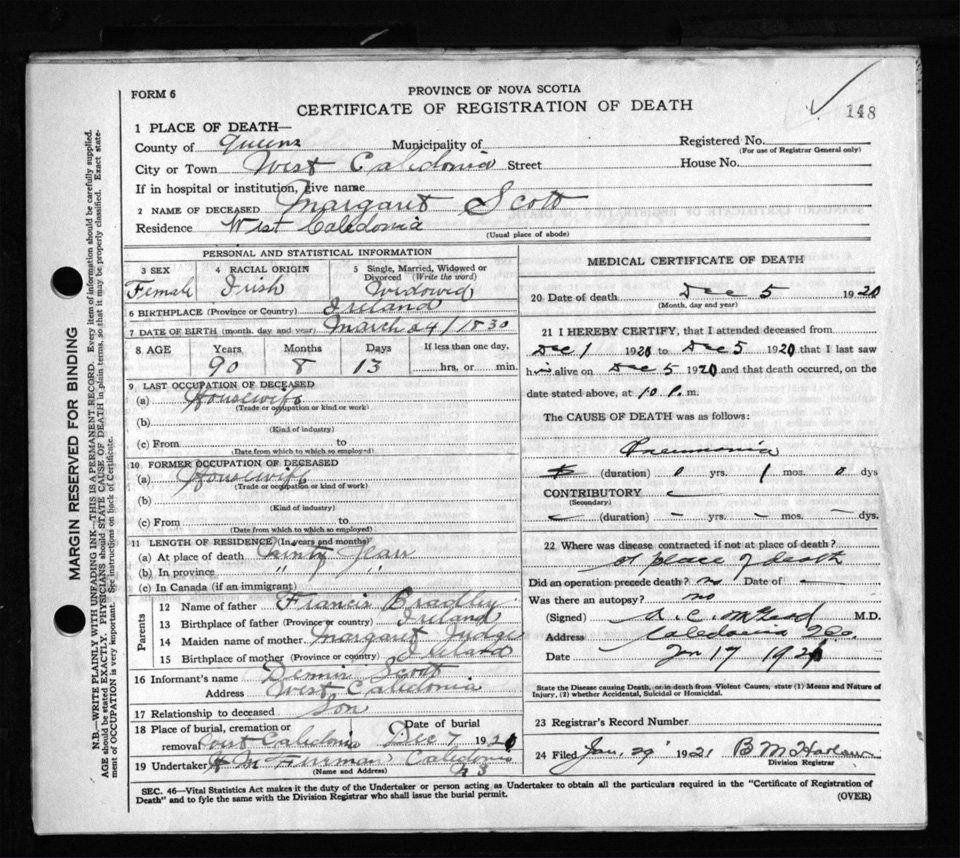 FORM 6
PROVINCE OF NOVA SCOTIA
CERTIFICATE OF REGISTRATION OF DEATH
148
1 PLACE OF DEATH—
County of Queens Municipality of
City or Town West Caledonia Street
Registered No.
(For use of Registrar General only)
House No.
If in hospital or institution, give name
2 NAME OF DECEASED Margaret Scott
Residence West Caledonia
(Usual place of abode)
PERSONAL AND STATISTICAL INFORMATION
3 SEX 4 RACIAL ORIGIN 5 Single, Married, Widowed or
Divorced (Write the word)
Female Irish Widowed
6 BIRTHPLACE (Province or Country) Ireland
7 DATE OF BIRTH (month, day and year) March 24/1830
8 AGE Years Months Days If less than one day,
90 8 13 hrs. or min.
9 LAST OCCUPATION OF DECEASED
(a) Housewife
(Trade or occupation or kind or work)
(b)
(Kind of industry)
(c) From to
(Date from which to which so employed)
10 FORMER OCCUPATION OF DECEASED
(a) Housewife
(Trade or occupation or kind of work)
(b)
(Kind of industry)
(c) From to
(Date from which to which so employed)
11 LENGTH OF RESIDENCE (In years and months)
(a) At place of death Years
(b) In province " "
(c) In Canada (if an immigrant)
Parents
12 Name of father Francis Bradley
13 Birthplace of father (Province or country) Ireland
14 Maiden name of mother Margaret Judge
15 Birthplace of mother (Province or country) Ireland
16 Informant's name Dennis Scott
Address West Caledonia
17 Relationship to deceased Son
18 Place of burial, cremation or Date of burial
removal West Caledonia Dec 7 1920
19 Undertaker Caledonia
(Name and Address) N S
MEDICAL CERTIFICATE OF DEATH
20 Date of death Dec 5 1920
(Month, day and year)
21 I HEREBY CERTIFY, that I attended deceased from
Dec 1 1920 to Dec 5 1920 that I last saw
h alive on Dec 5 1920 and that death occurred, on the
date stated above, at 10 P. m.
The CAUSE OF DEATH was as follows:
Pneumonia
(duration) 0 yrs. 1 mos. 0 dys
CONTRIBUTORY —
(Secondary)
— (duration) — yrs. — mos. — dys.
22 Where was disease contracted if not at place of death?
at place of death
Did an operation precede death? no Date of —
Was there an autopsy? no
(Signed) A. C. M.D.
Address Caledonia Q Co.
Date Jan 17 1921
State the Disease causing Death, or in death from Violent Causes, state (1) Means and Nature of
Injury, (2) whether Accidental, Suicidal or Homicidal.
23 Registrar's Record Number
24 Filed Jan. 29 1921 B M Harlow
Division Registrar
SEC. 46—Vital Statistics Act makes it the duty of the Undertaker or person acting as Undertaker to obtain all the particulars required in the "Certificate of Registration of
Death" and to fyle the same with the Division Registrar who shall issue the burial permit.
(OVER)
MARGIN RESERVED FOR BINDING
N.B.—WRITE PLAINLY WITH UNFADING INK—THIS IS A PERMANENT RECORD. Every item of information should be carefully supplied.
AGE should be stated EXACTLY. PHYSICIANS should STATE CAUSE OF DEATH in plain terms, so that it may be properly classified. Exact state-
ment of OCCUPATION is very important. See instructions on back of Certificate.